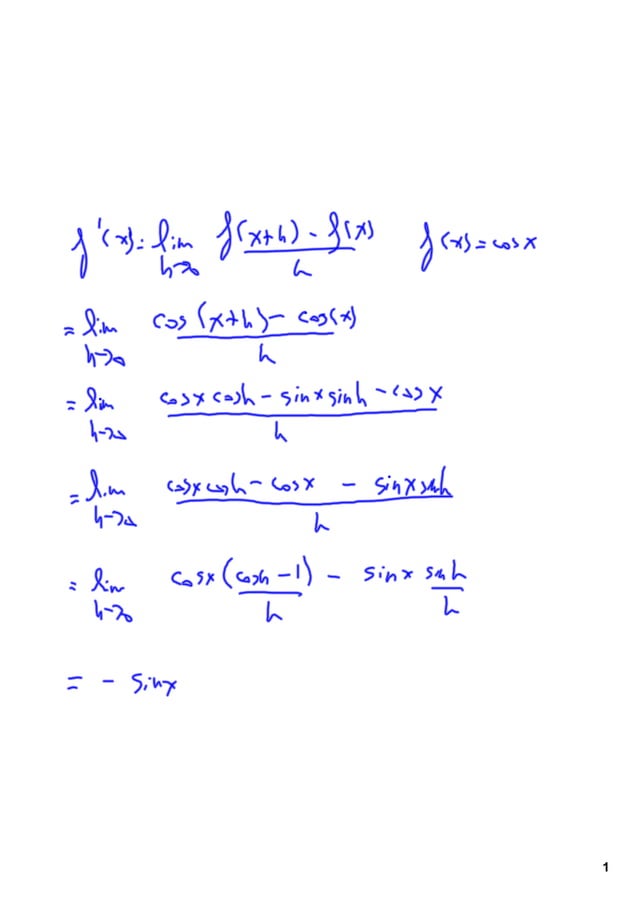 f'(x) = lim h→0 (f(x+h) - f(x))/h    f(x) = cosx
= lim h→0 (cos(x+h) - cos(x))/h
= lim h→0 (cosx cosh - sinx sinh - cosx)/h
= lim h→0 (cosx cosh - cosx - sinx sinh)/h
= lim h→0 cosx (cosh - 1)/h - sinx sinh/h
= - sinx
1